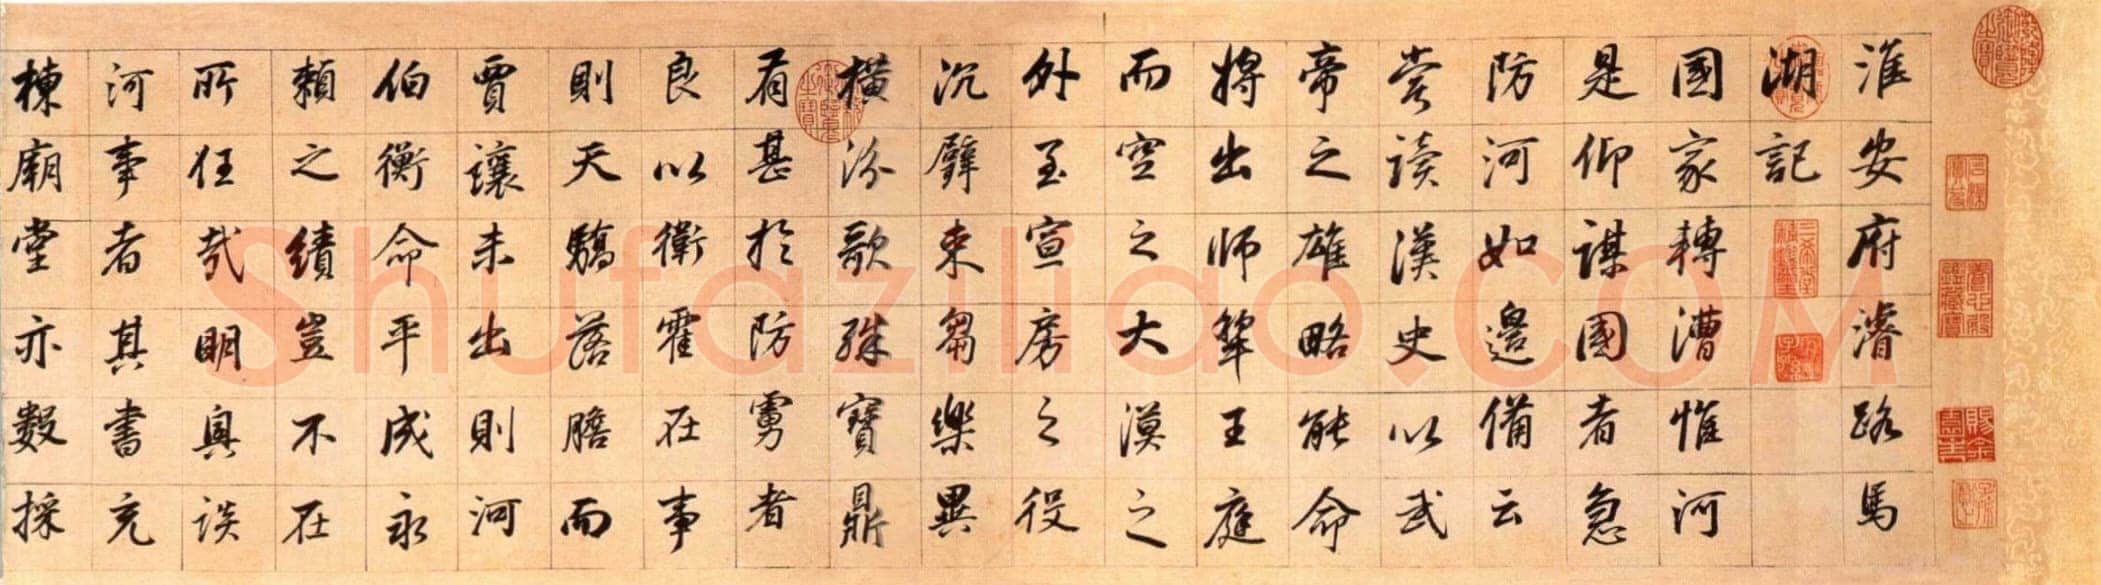 淮安府濬路馬
湖記
國家轉漕惟河
是仰謀國者急
防河如邊備云
嘗讀漢史以武
帝之雄略能命
將出師犂王庭
而空之大漠之
外至宣房之役
沉璧束芻樂異
橫汾歌殊寶鼎
有甚於防虜者
良以衛霍在事
則天驕落膽而
賈讓未出則河
伯衡命平成永
賴之績豈不在
所任哉明興談
河事者其書充
棟廟堂亦數採
三希堂精鑑璽
宜子孫
石渠寶笈
養心殿鑑藏寶
Shufaziliao.COM